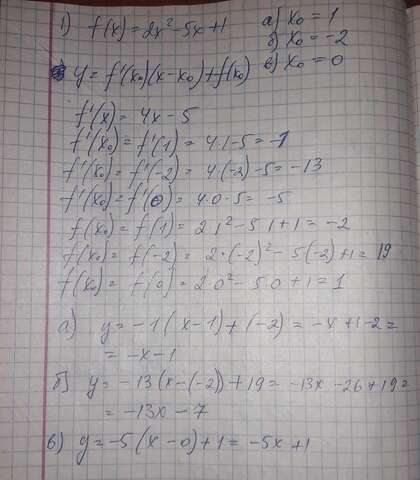 1) f(x) = 2x² - 5x + 1 а) x₀ = 1
б) x₀ = -2
в) x₀ = 0
y = f'(x₀)(x - x₀) + f(x₀)
f'(x) = 4x - 5
f'(x₀) = f'(1) = 4·1 - 5 = -1
f'(x₀) = f'(-2) = 4·(-2) - 5 = -13
f'(x₀) = f'(0) = 4·0 - 5 = -5
f(x₀) = f(1) = 2·1² - 5·1 + 1 = -2
f(x₀) = f(-2) = 2·(-2)² - 5(-2) + 1 = 19
f(x₀) = f(0) = 2·0² - 5·0 + 1 = 1
а) y = -1(x - 1) + (-2) = -x + 1 - 2 =
= -x - 1
б) y = -13(x - (-2)) + 19 = -13x - 26 + 19 =
= -13x - 7
в) y = -5(x - 0) + 1 = -5x + 1